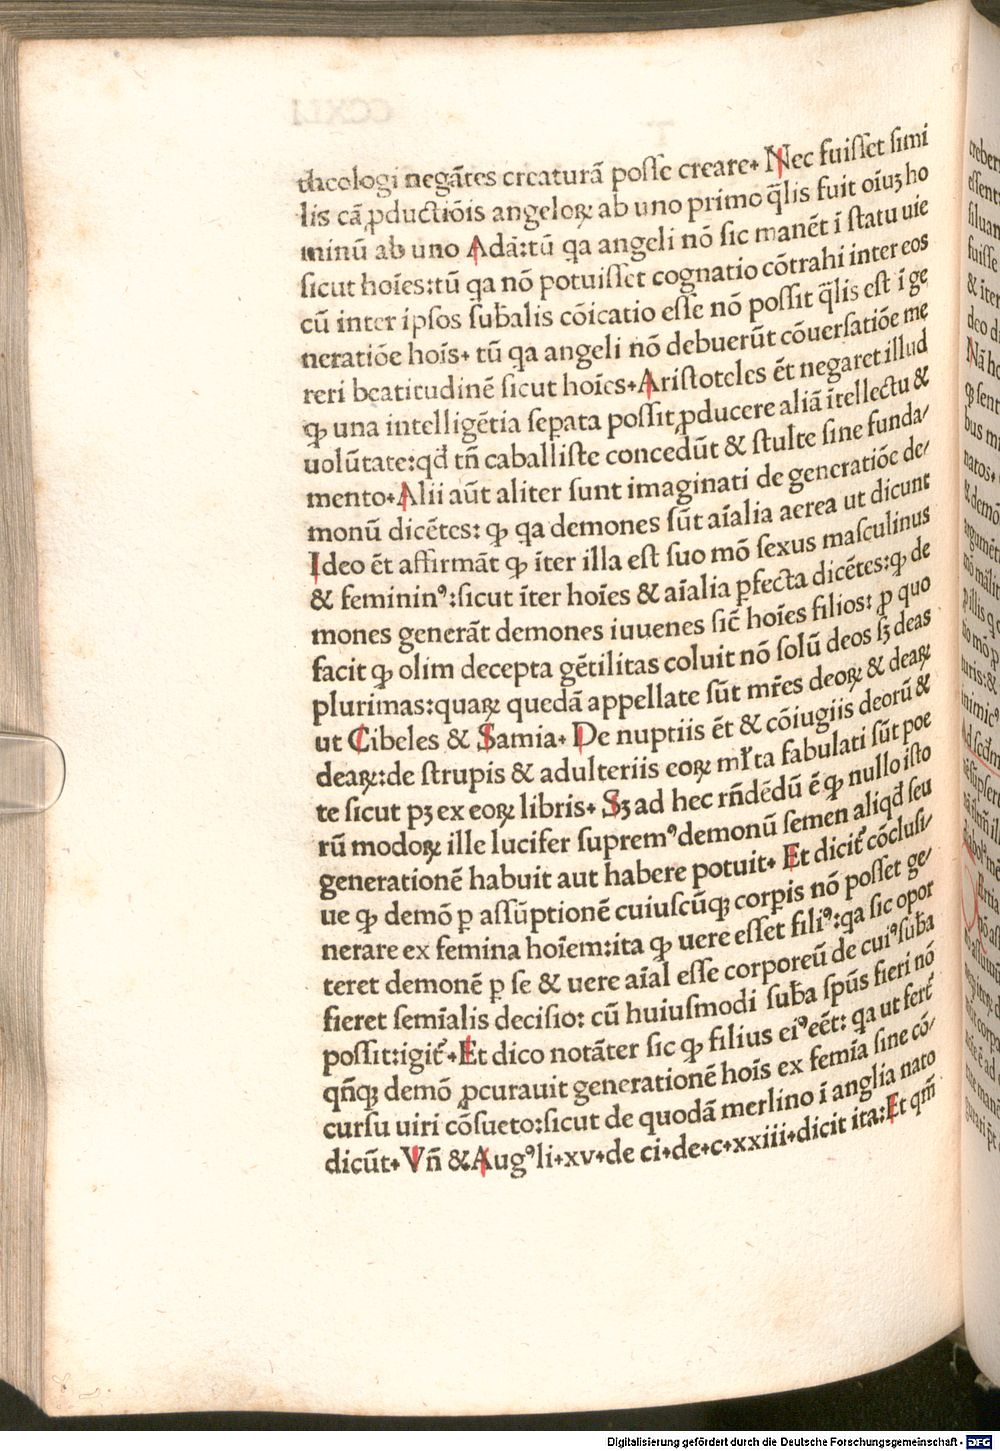 theologi negātes creaturā posse creare. Nec fuisset simi
lis cā ꝓductiōis angeloꝝ ab uno primo q̄lis fuit oiūꝫ ho
minū ab uno Adā:tū qa angeli nō sic manēt ī statu uie
sicut hoīes:tū qa nō potuisset cognatio cōtrahi inter eos
cū inter ipsos sub̄alis cōicatio esse nō possit q̄lis est ī ge
neratiōe hoīs. tū qa angeli nō debuerūt cōuersatiōe me
reri beatitudinē sicut hoīes. Aristoteles ēt negaret illud
ꝙ una intelligētia seꝑata possit ꝓducere aliā ītellectu &
uolūtate:qd̄ tn̄ caballiste concedūt & stulte sine funda/
mento. Alii aūt aliter sunt imaginati de generatiōe de/
monū dicētes: ꝙ qa demones sūt aīalia aerea ut dicunt
Ideo ēt affirmāt ꝙ īter illa est suo mō sexus masculinus
& femininꝰ:sicut īter hoīes & aīalia ꝑfecta dicētes:ꝙ de
mones generāt demones iuuenes sic̄ hoīes filios: ꝓ quo
facit ꝙ olim decepta gētilitas coluit nō solū deos sꝫ deas
plurimas:quaꝝ quedā appellate sūt mr̄es deoꝝ & deaꝝ
ut Cibeles & Samia. De nuptiis ēt & cōiugiis deorū &
deaꝝ:de strupis & adulteriis eoꝝ ml̄ta fabulati sūt poe
te sicut pꝫ ex eoꝝ libris. Sꝫ ad hec rn̄dēdū ē ꝙ nullo isto
rū modoꝝ ille lucifer supremꝰ demonū semen aliqd̄ seu
generationē habuit aut habere potuit. Et dicit̄ cōclusi/
ue ꝙ demō ꝑ assūptionē cuiuscūqꝫ corꝑis nō posset ge/
nerare ex femina hoīem:ita ꝙ uere esset filiꝰ:qa sic opor
teret demonē ꝑ se & uere aīal esse corporeū de cuiꝰ sub̄a
fieret semīalis decisio: cū huiusmodi sub̄a sp̄us fieri nō
possit:igit̄. Et dico notāter sic ꝙ filius eiꝰ eēt: qa ut fert̄
qn̄qꝫ demō ꝓcurauit generationē hoīs ex femīa sine cō/
cursu uiri cōsueto:sicut de quodā merlino ī anglia nato
dicūt. Vn̄ & Augꝰ li.xv.de ci.de.c.xxiii.dicit ita:Et qm̄
Digitalisierung gefördert durch die Deutsche Forschungsgemeinschaft - DFG